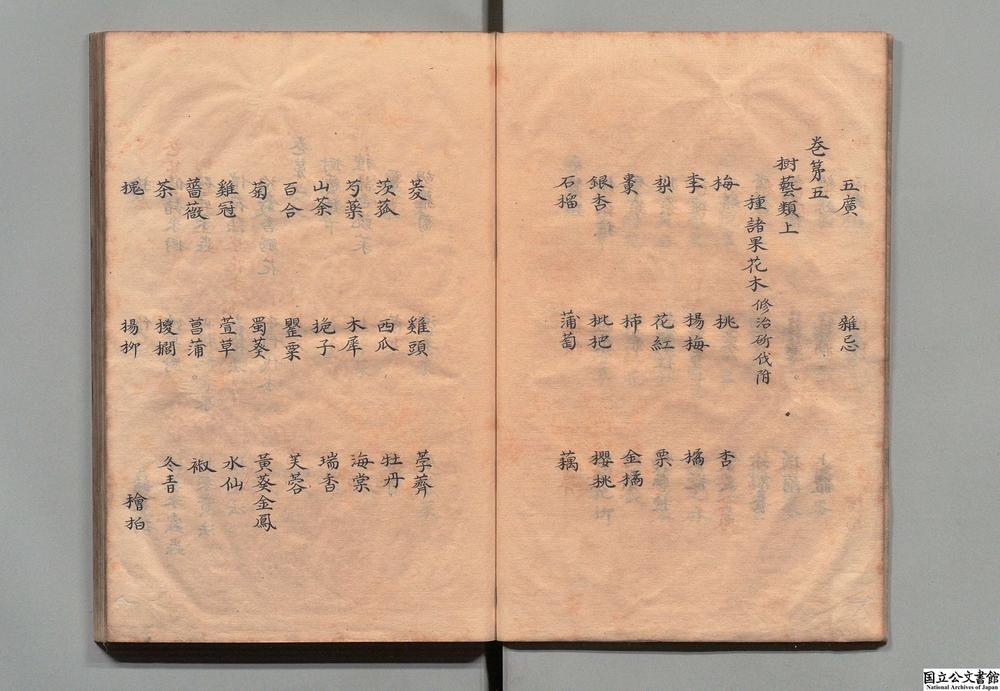 五廣　雜忌
卷第五
樹藝類上
種諸果花木 修治斫伐附
梅　桃　杏
李　楊梅　橘
梨　花紅　栗
棗　柿　金橘
銀杏　枇杷　櫻桃
石榴　蒲萄　藕
菱　雞頭　荸薺
茨菰　西瓜　牡丹
芍藥　木犀　海棠
山茶　梔子　瑞香
百合　罌粟　芙蓉
菊　蜀葵　黃葵金鳳
雞冠　萱草　水仙
薔薇　菖蒲。　椒
茶　椶櫚　冬青
槐　楊柳　檜柏
国立公文書館
National Archives of Japan